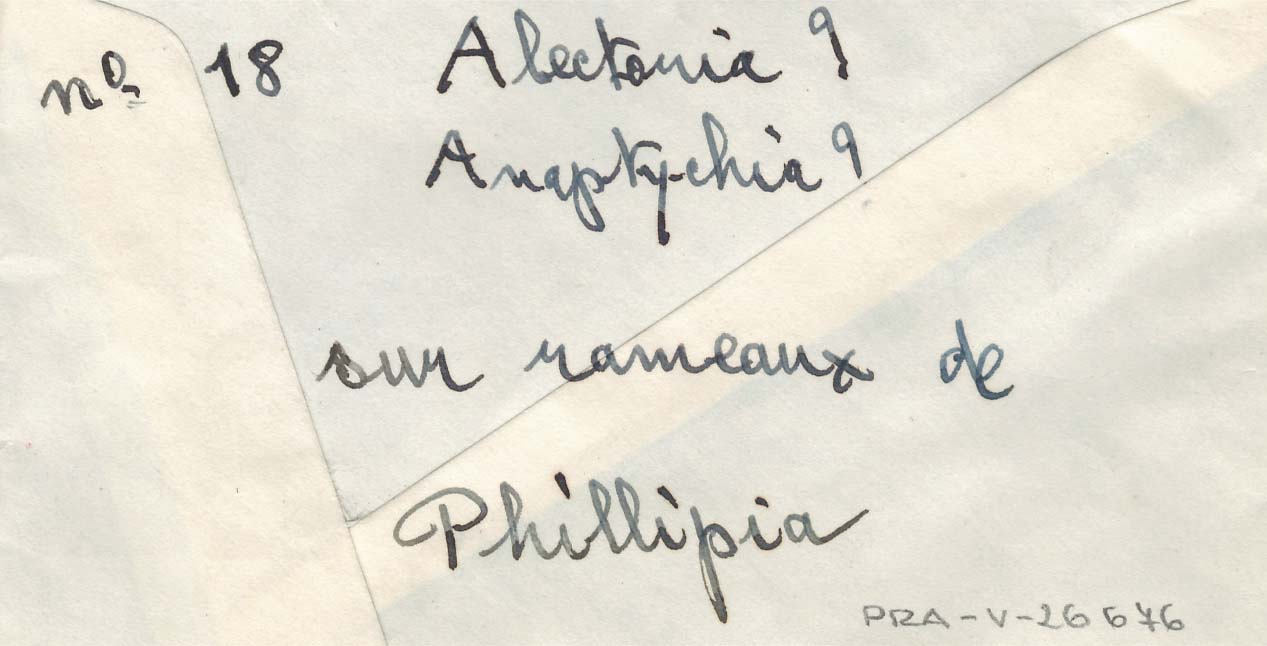 nº 18 Alectoria ?
Anaptychia ?
sur rameaux de
Phillipia
PRA-V-26676